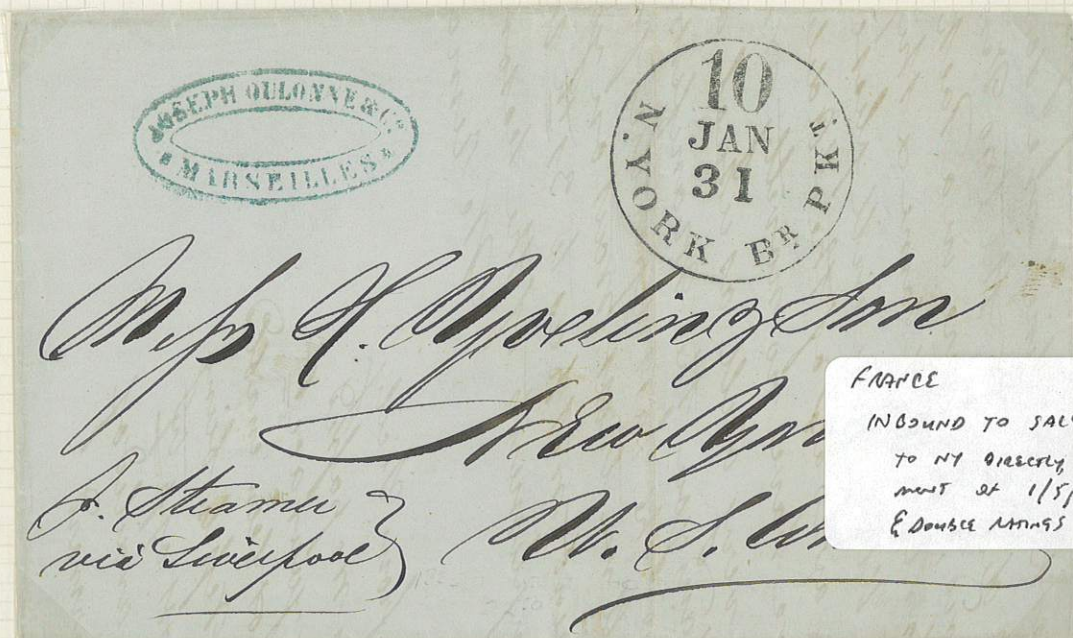 JOSEPH OULONNE & Cº
MARSEILLES
10
JAN
31
N. YORK BR PKT
Messrs H. & Son
New
p. Steamer
via Liverpool
U. S.
FRANCE
INBOUND TO
TO NY DIRECTLY,
at 1/5/
& DOUBLE RATINGS